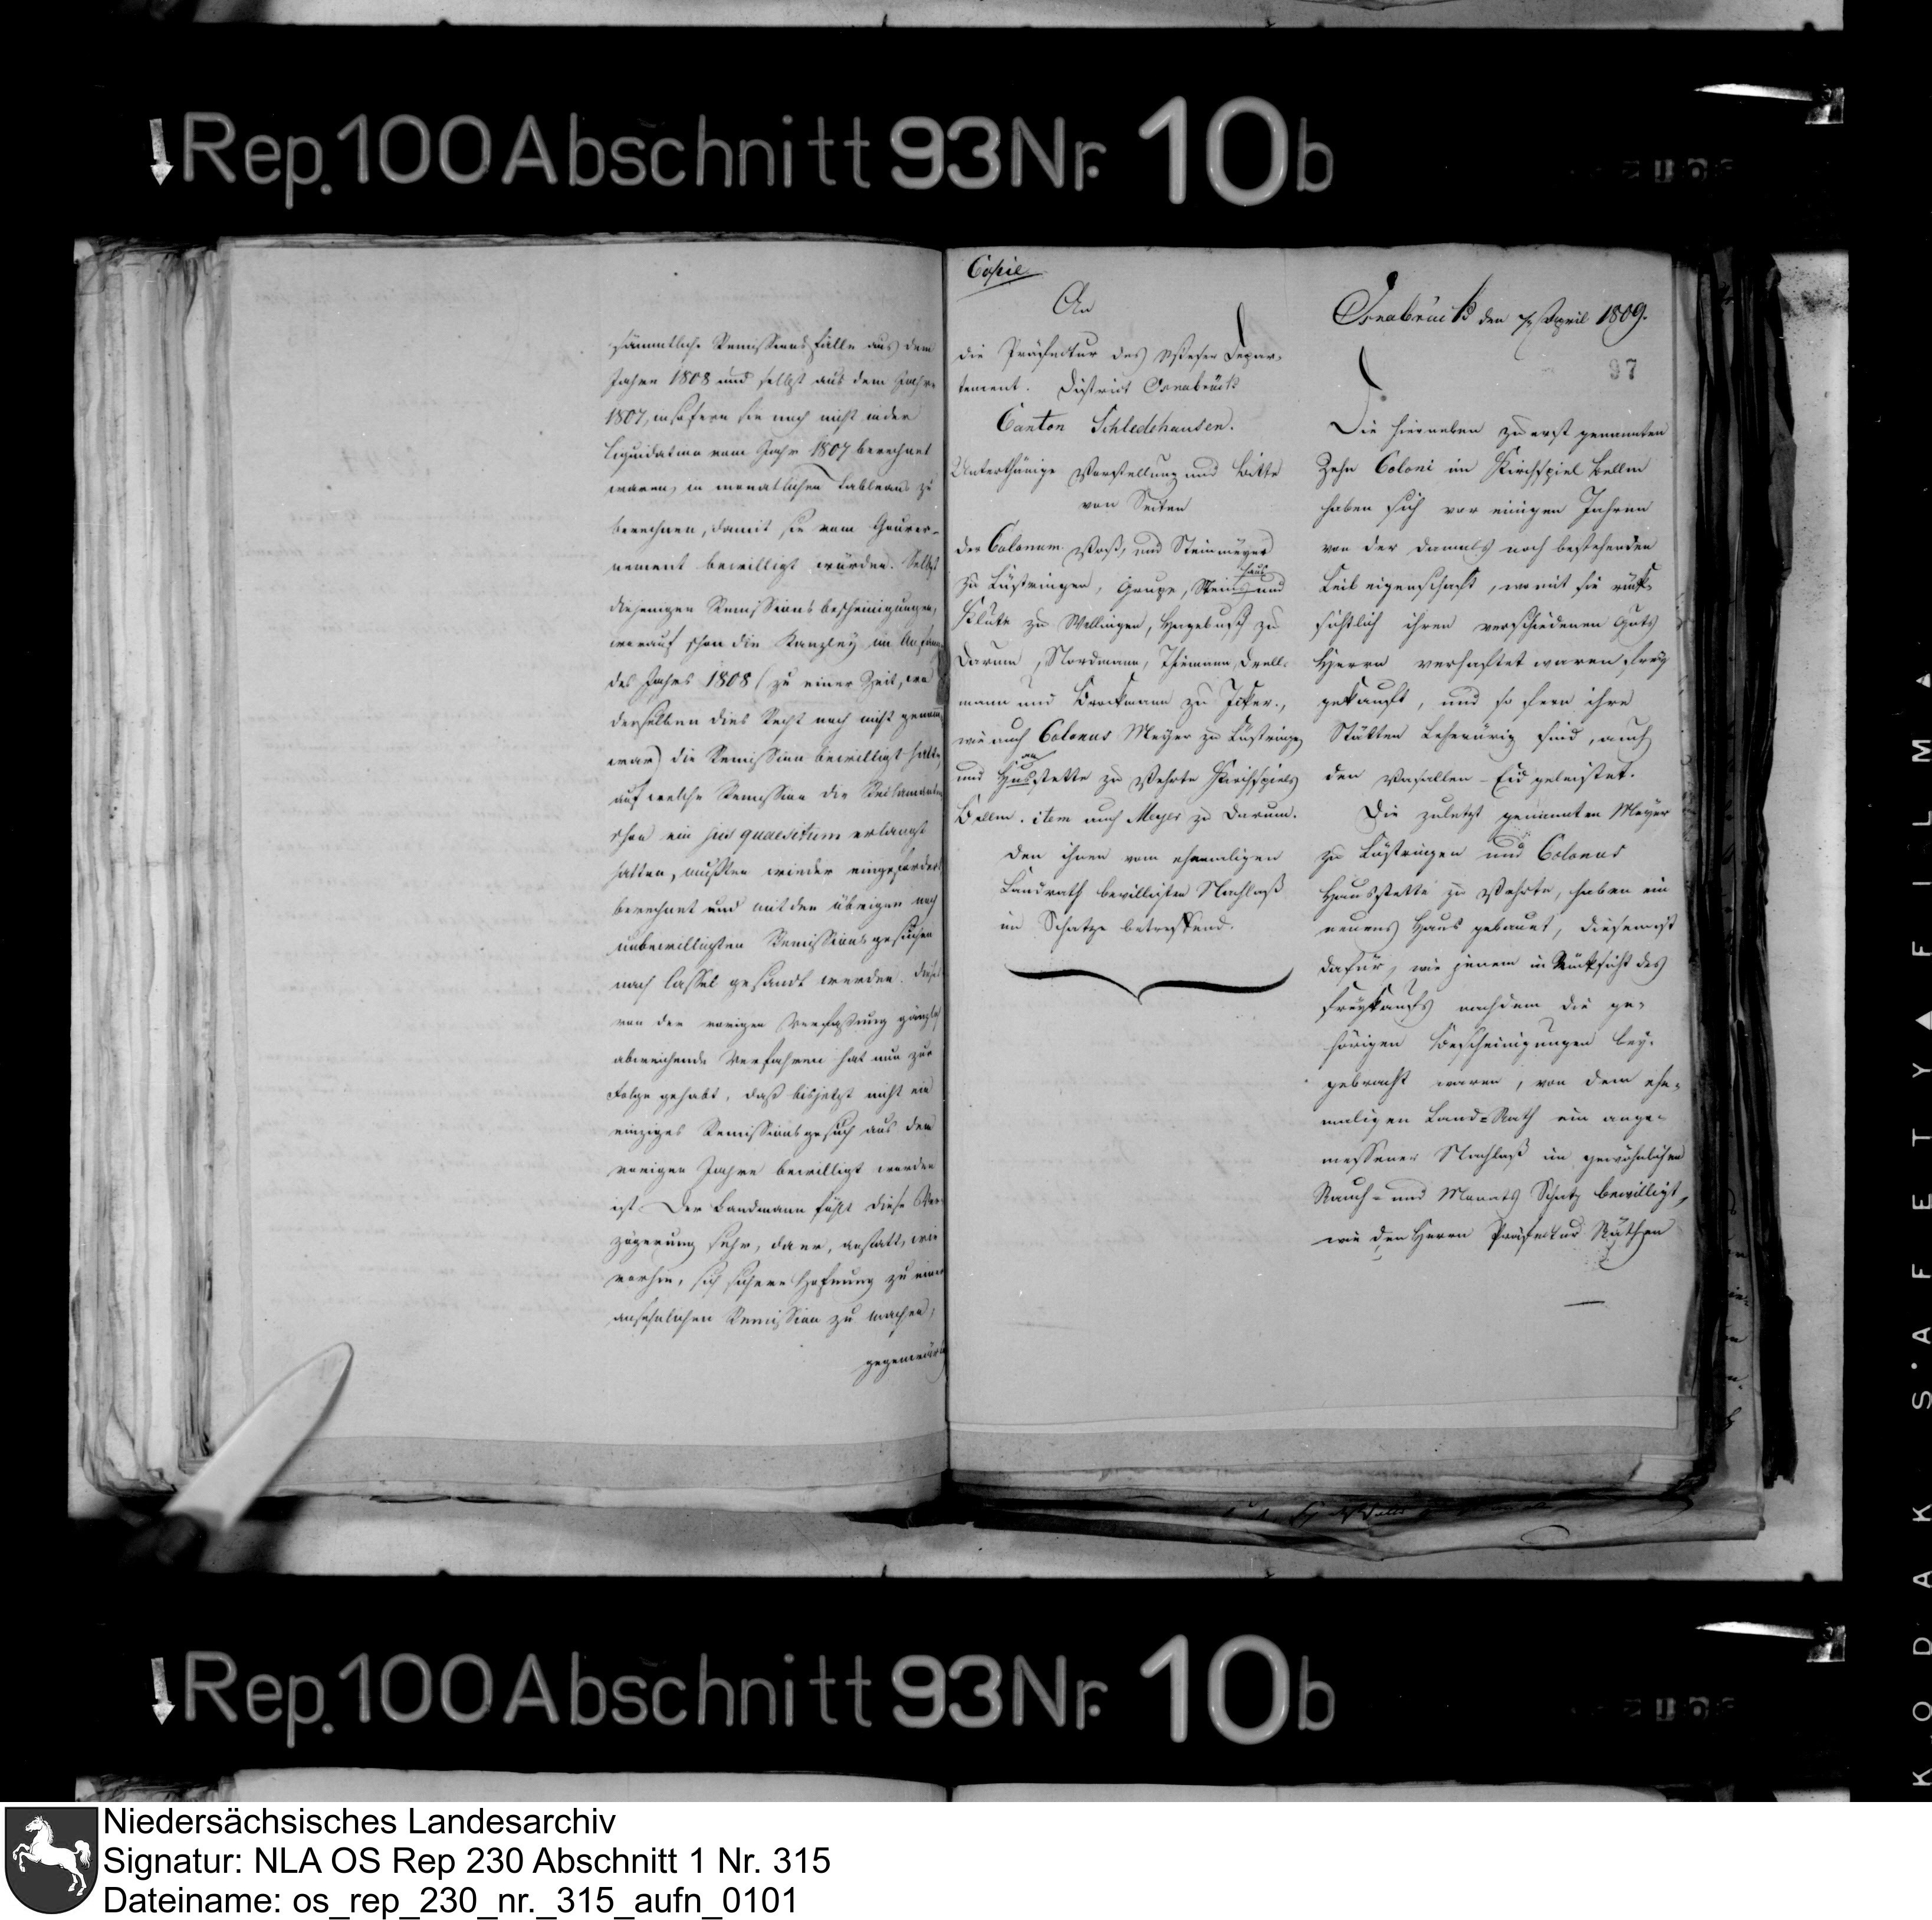 Rep. 100 Abschnitt 93 Nr. 10b
sämmtliche Remissions fälle aus dem
Jahre 1808 und selbst aus dem Jahre
1807, insofern sie noch nicht in der
Liquidation vom Jahr 1807 berechnet
waren, in monatlichen Tableaus zu
berechnen, damit sie vom Gouver-
nement bewilligt würden. Selbst
diejenigen Remissions bescheinigungen,
worauf schon die Kanzley im Anfang
des Jahrs 1808 (zu einer Zeit, wo
derselben dies Recht noch nicht genommen
war) die Remission bewilligt hatte,
auf welche Remission die Reclamanten
schon ein jus quaesitum erlangt
hatten, mußten wieder eingefordert
berechnet und mit den übrigen noch
unbewilligten Remissions gesuchen
nach Cassel gesandt werden. Dieses
von der vorigen Verfassung gänzlich
abweichende Verfahren hat nun zur
Folge gehabt, daß bisjetzt nicht ein
einziges Remissionsgesuch aus dem
vorigen Jahre bewilligt worden
ist. Der Landmann fühlt diese Ver-
zögerung sehr, da er, anstatt, wie
vorhin, sich sichere Hofnung zu einer
ansehnlichen Remission zu machen,
gegenwärtig
Copie
An
die Präfectur des Weser Depar-
tement. District Osnabrück
Canton Schledehausen.
Unterthänige Vorstellung und Bitte
von Seiten
der Colonum Voß, und Steinmeyer
zu Lüstringen, Grupe, Steins und
haus
Klute zu Wellingen, Hagebusch zu
Darum, Nordmann, Thiemann, Drell-
mann und Brockmann zu Icker,
wie auch Colonus Meyer zu Lüstringen
und Husstette zu Vehrte Kirchspiels
au
Bellm. item auch Meyer zu Darum.
den ihnen vom ehemaligen
Landrath bewilligten Nachlaß
im Schatze betreffend.
Osnabrück den April 1809.
97
Die hierneben zu erst genannten
Zehn Coloni im Kirchspiel Bellm
haben sich vor einigen Jahren
von der damals noch bestehenden
Leibeigenschaft, womit sie rück-
sichtlich ihren verschiedenen Guts
Herrn verhaftet waren frey
gekauft, und so fern ihre
Stätten Lehnrürig sind, auch
den Vasallen-Eid geleistet.
Die zuletzt genannten Meyer
zu Lüstringen und Colonus
Hausstette zu Vehrte, haben ein
neues Haus gebauet, diesen ist
dafür, wie jenem in Rücksicht des
Freykaufs nachdem die ge-
hörigen Bescheinigungen bey-
gebracht waren, von dem ehe-
maligen Land-Rath ein ange-
messener Nachlaß im gewöhnlichen
Rauch- und Monats Schatz bewilligt,
wie den Herrn Präfectur Räthen
Rep. 100 Abschnitt 93 Nr. 10b
KODAK SAFETY FILM
Niedersächsisches Landesarchiv
Signatur: NLA OS Rep 230 Abschnitt 1 Nr. 315
Dateiname: os_rep_230_nr._315_aufn_0101